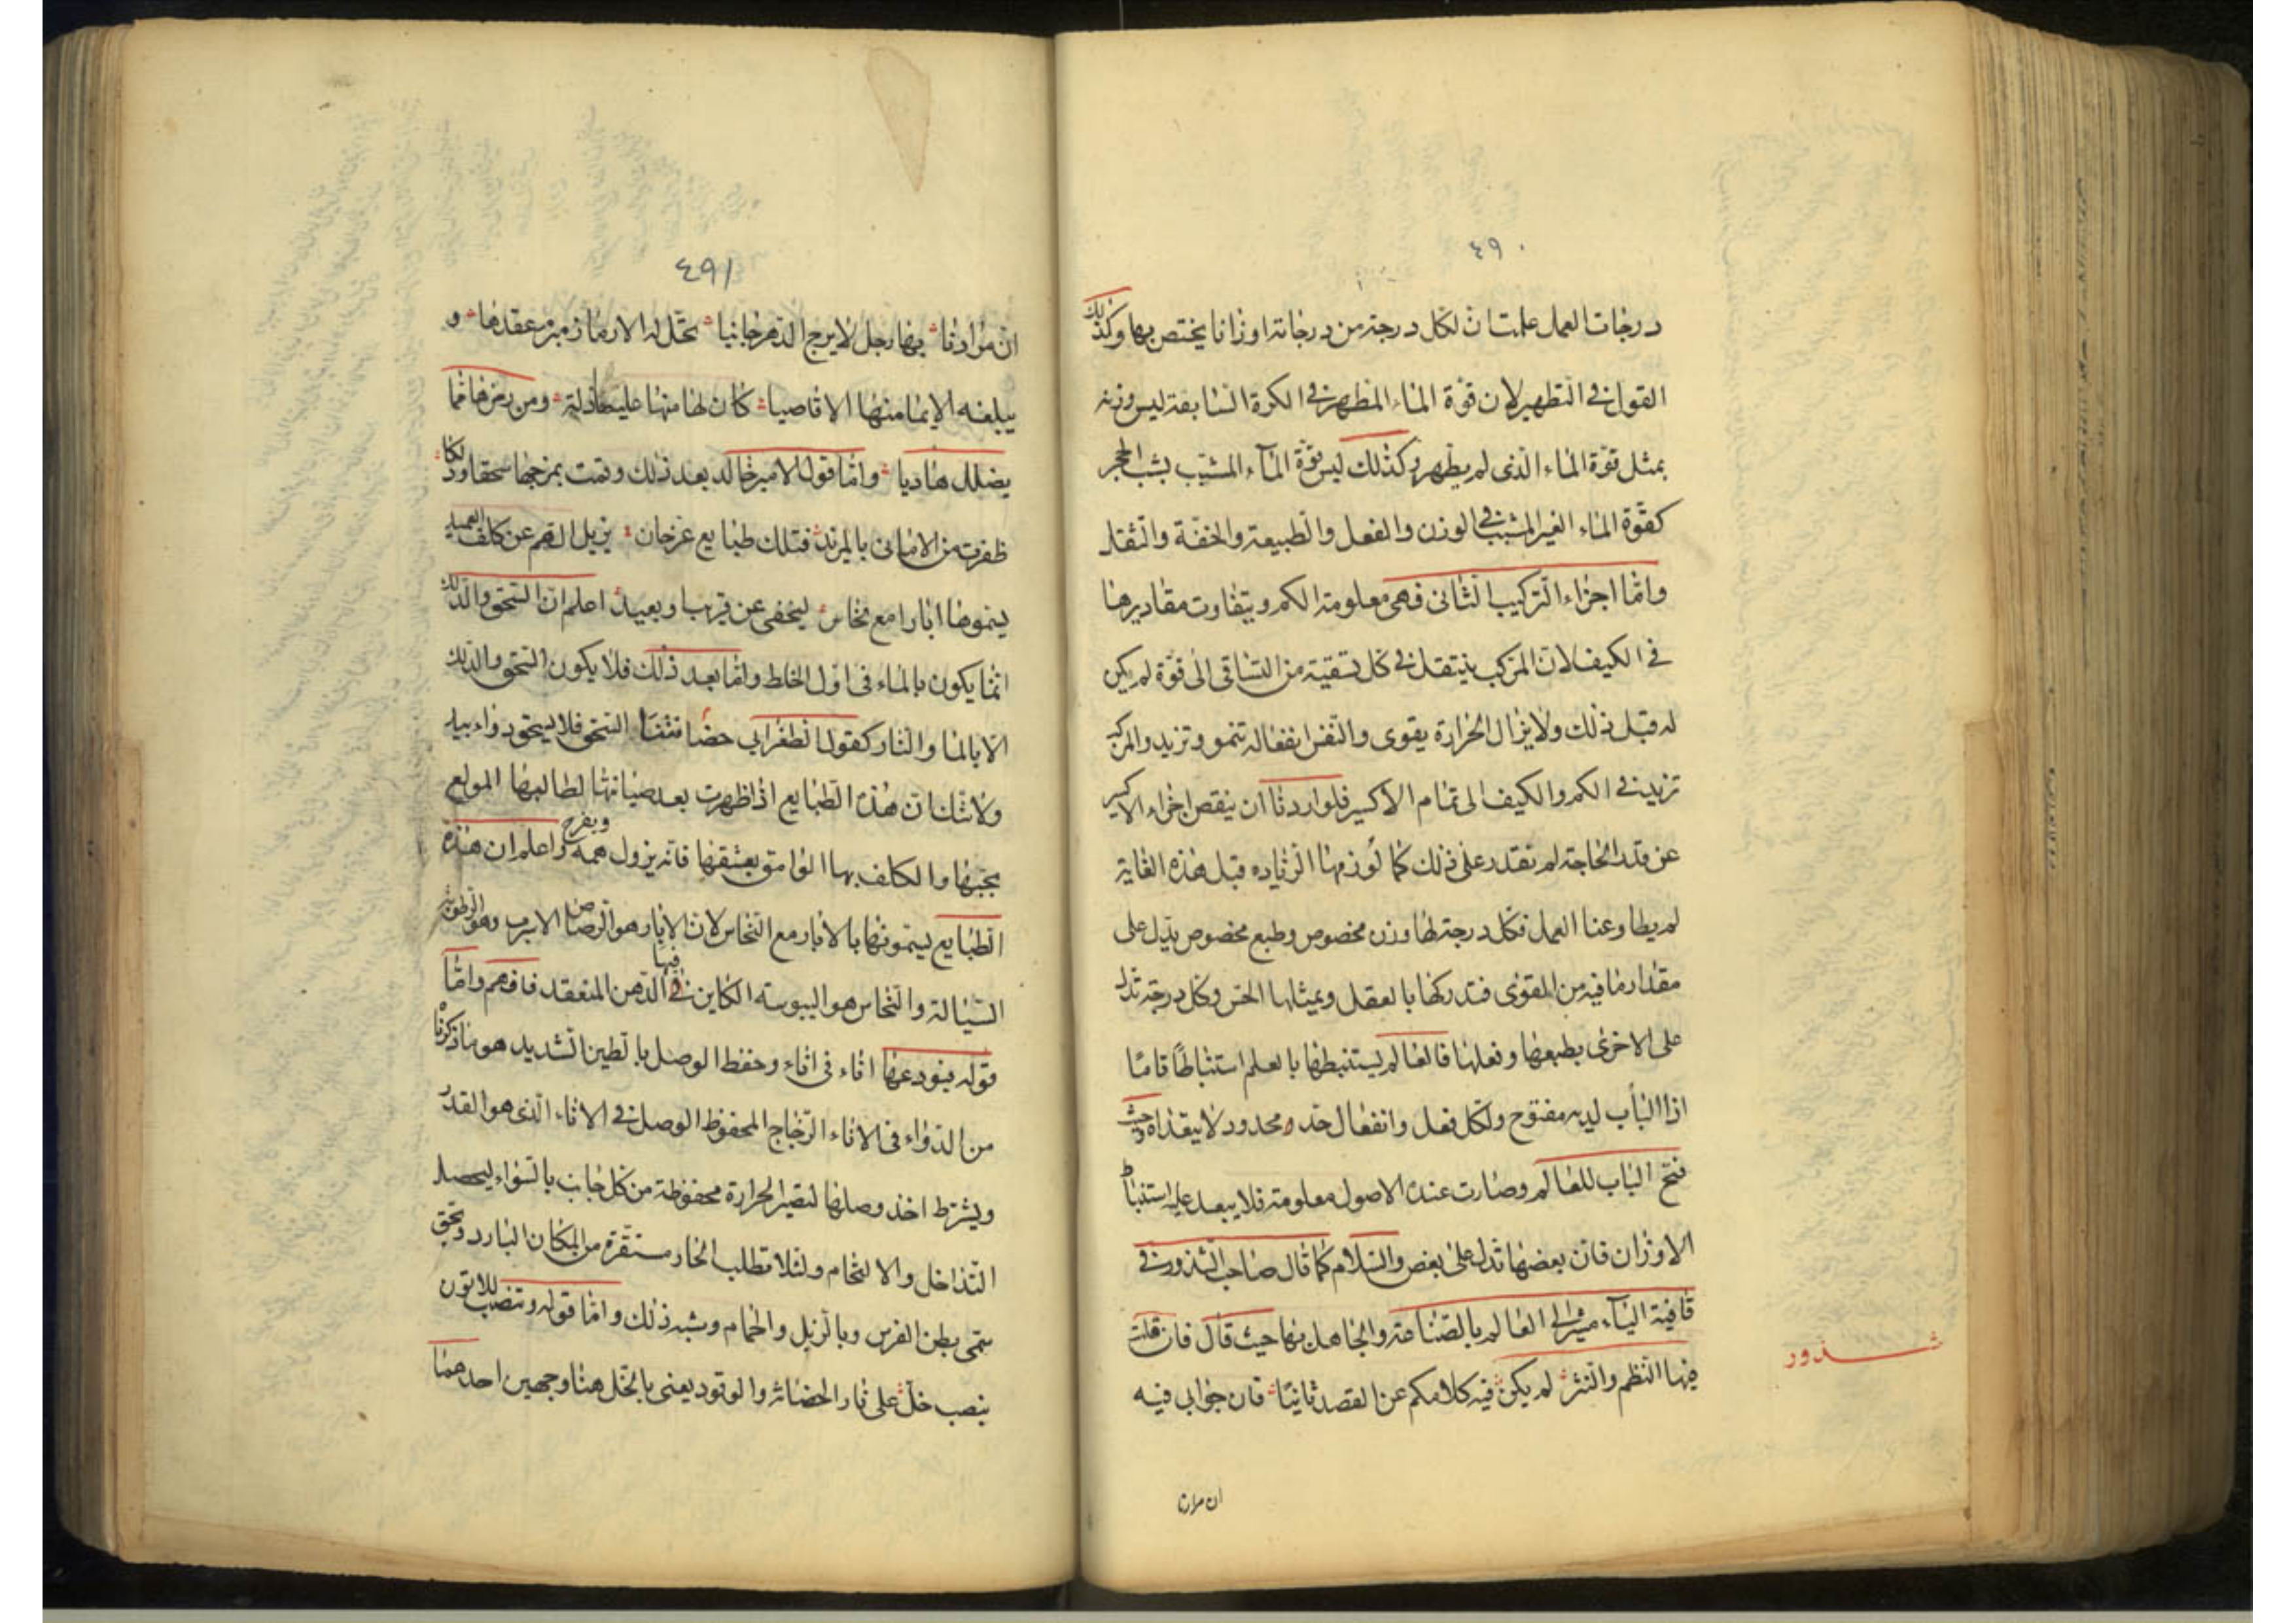 ٤٩٠
درجات العمل علمت ان لكل درجة من درجاته اوزانا يختص بها وكذلك
القول في التطهير لان قوة الماء المطهر في الكرة السابعة ليس وزنه
بمثل قوة الماء الذى لم يطهر وكذلك ليس قوة المآء المشبب بشب الحجر
كقوة الماء الغير المشبب في الوزن والفعل والطبيعة والخفة والثقل
واما اجزاء التركيب الثانى فهى معلومة الكم ويتفاوت مقاديرها
في الكيف لان المركب ينتقل في كل تسقية من التساقى الى قوة لم يكن
له قبل ذلك ولا يزال الحرارة يقوى والنفس انفعاله تنمو وتزيد والمركب
تزيد في الكم والكيف الى تمام الاكسير فلو اردنا ان ينقص اجزاء الاكسير
عن قدر الحاجة لم نقدر على ذلك كما لو رمنا الزياده قبل هذه الغاية
لم يطاوعنا العمل فكل درجة لها وزن مخصوص وطبع مخصوص يدل على
مقدار ما فيه من القوى فتدركها بالعقل ويمثلها الحس وكل درجة تدل
على الاخرى بطبعها وفعلها فالعالم يستنبطها بالعلم استنباطا تاما
اذا الباب لديه مفتوح ولكل فعل وانفعال حد محدود لا يتعداه وحيث
فتح الباب للعالم وصارت عنده الاصول معلومة فلا يبعد عليه استنباط
الاوزان فان بعضها تدل على بعض والسلام كما قال صاحب الشذور في
قافية اليآء مشيرا الى العالم بالصناعة والجاهل بها حيث قال فان قلت
فيها النظم والنثر لم يكن فيه كلامكم عن القصد ثانيا فان جوابى فيه
شذور
ان مرادنا
٤٩١
ان مرادنا فيها رجل لا يرج الدهر جانيا تحل له الارماز مبرم عقدها و
يبلغه الايما منها الاقاصيا كان لها منها عليها ادلة ومن رمزها ما
يضلل هاديا واما قول الامير خالد بعد ذلك وتمت بمزجها سحقا ودلكا
ظفرت من الامانى بالمزيد فتلك طبايع يزيل الهم عن كلف العميد
يسموها ابارا مع نحاس ليخفى عن قريب او بعيد اعلم ان السحق والدلك
انما يكون بالماء فى اول الخلط واما بعد ذلك فلا يكون السحق والدلك
الا بالماء والنار كقول الطغرابي السحق فلا يسحق
ولا شك ان هذه الطبايع اذا ظهرت بعد صيانتها لطالبها المولع
بحبها والكلف بها الوامق بعشقها فانه يزول همه ويفرح واعلم ان هذه
الطبايع يسمونها بالابار مع النحاس لان الابار هو الرصاص الاسرب وهو الرطوبة
السيالة والنحاس هو اليبوسة الكاين فيها في الدهن المنعقد فافهم واما
قوله ينودعها اناء فى اناء وحفظ الوصل بالطين الشديد هو ما ذكرنا
من الدواء فى الاناء الزجاج المحفوظ الوصل في الاناء الذى هو القدر
ويشرط اخذ وصلها لتصير الحرارة محفوظة من كل جانب بالسواء ليحصل
التداخل والالتحام ولئلا تطلب الحار مستقره من المكان البارد
سمى بطن الفرس وبالزبل والحمام وشبه ذلك واما قوله وتنصب للاتون
ينصب خل على نار الحضانة والوقود يعنى بالخل هنا وجهين احدهما